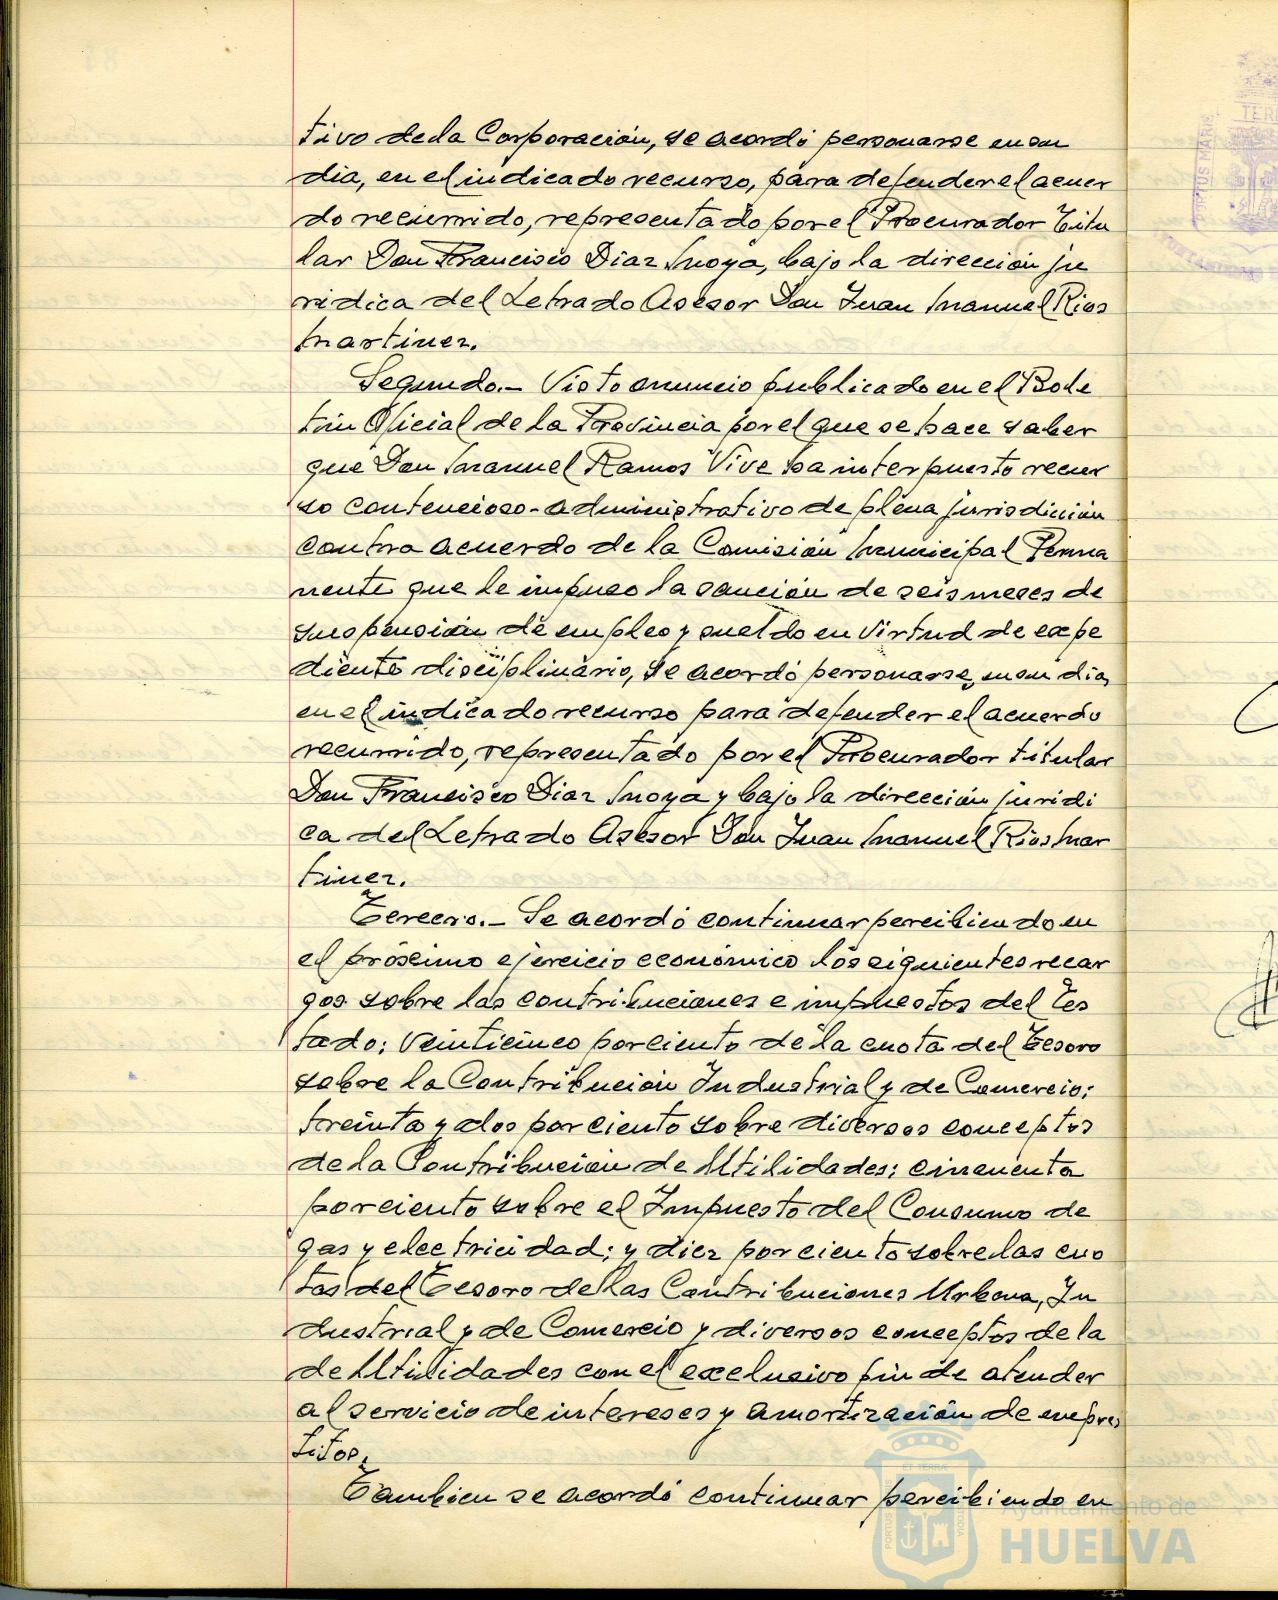 tivo de la Corporación, se acordó personarse en su
dia, en el indicado recurso, para defender el acuer
do recurrido, representado por el Procurador Titu
lar Don Francisco Diaz Moya, bajo la dirección ju
ridica del Letrado Asesor Don Juan Manuel Rios
Martinez.
Segundo.- Visto anuncio publicado en el Bole
tin Oficial de la Provincia por el que se hace saber
que Don Manuel Ramos Vive ha interpuesto recur
so contencioso-administrativo de plena jurisdición
contra acuerdo de la Comisión Municipal Perma
nente que le impuso la sanción de seis meses de
suspensión de empleo y sueldo en virtud de expe
diente disciplinario, se acordó personarse, en su dia,
en el indicado recurso para defender el acuerdo
recurrido, representado por el Procurador titular
Don Francisco Diaz Moya y bajo la dirección juridi
ca del Letrado Asesor Don Juan Manuel Rios Mar
tinez.
Tercero.- Se acordó continuar percibiendo en
el próximo ejercicio económico los siguientes recar
gos sobre las contribuciones e impuestos del Es
tado: Veinticinco por ciento de la cuota del Tesoro
sobre la Contribución Industrial y de Comercio;
treinta y dos por ciento sobre diversos conceptos
de la Contribución de Utilidades; cincuenta
por ciento sobre el Impuesto del Consumo de
gas y electricidad; y diez por ciento sobre las cuo
tas del Tesoro de las Contribuciones Urbana, In
dustrial y de Comercio y diversos conceptos de la
de Utilidades con el exclusivo fin de atender
al servicio de intereses y amortización de emprés
titos.
Tambien se acordó continuar percibiendo en
Ayuntamiento de
HUELVA